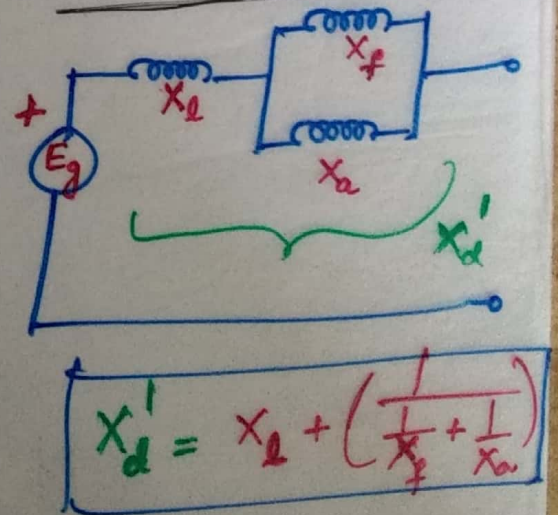 X_l
X_f
+
E_g
X_a
X_d'
X_d' = X_l + (1 / (1/X_f + 1/X_a))